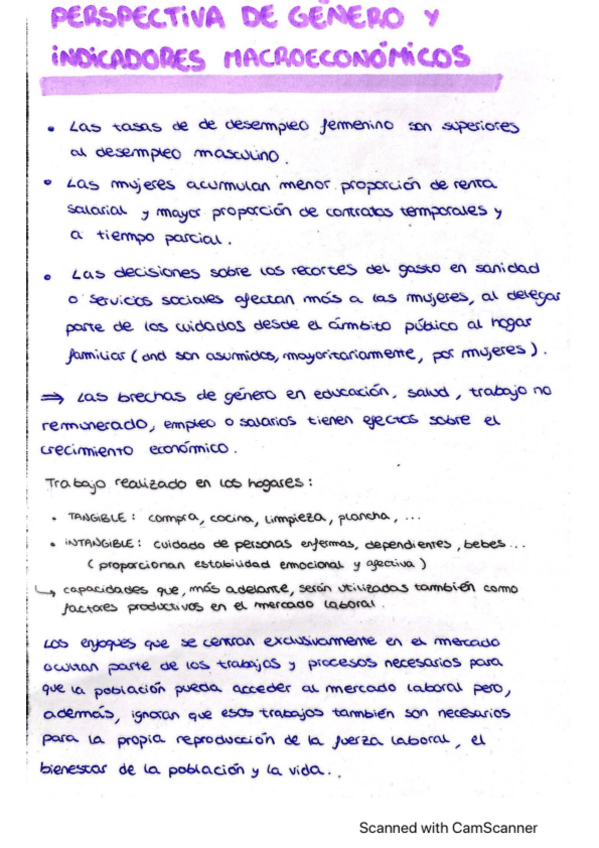 PERSPECTIVA DE GÉNERO Y
INDICADORES MACROECONÓMICOS
• Las tasas de de desempleo femenino son superiores
al desempleo masculino.
• Las mujeres acumulan menor proporción de renta
salarial y mayor proporción de contratos temporales y
a tiempo parcial.
• Las decisiones sobre los recortes del gasto en sanidad
o servicios sociales afectan más a las mujeres, al delegar
parte de los cuidados desde el ámbito público al hogar
familiar (dnd son asumidos, mayoritariamente, por mujeres).
⇒ Las brechas de género en educación, salud, trabajo no
remunerado, empleo o salarios tienen efectos sobre el
crecimiento económico.
Trabajo realizado en los hogares:
• TANGIBLE: compra, cocina, limpieza, plancha, ...
• INTANGIBLE: cuidado de personas enfermas, dependientes, bebes...
(proporcionan estabilidad emocional y afectiva)
↳ capacidades que, más adelante, serán utilizadas también como
factores productivos en el mercado laboral.
Los enfoques que se centran exclusivamente en el mercado
ocultan parte de los trabajos y procesos necesarios para
que la población pueda acceder al mercado laboral pero,
además, ignoran que esos trabajos también son necesarios
para la propia reproducción de la fuerza laboral, el
bienestar de la población y la vida..
Scanned with CamScanner